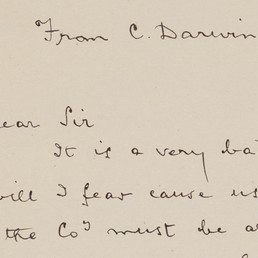 From C. Darwin
ear Sir
It is a very ba
will I fear cause us
the Co^y must be a